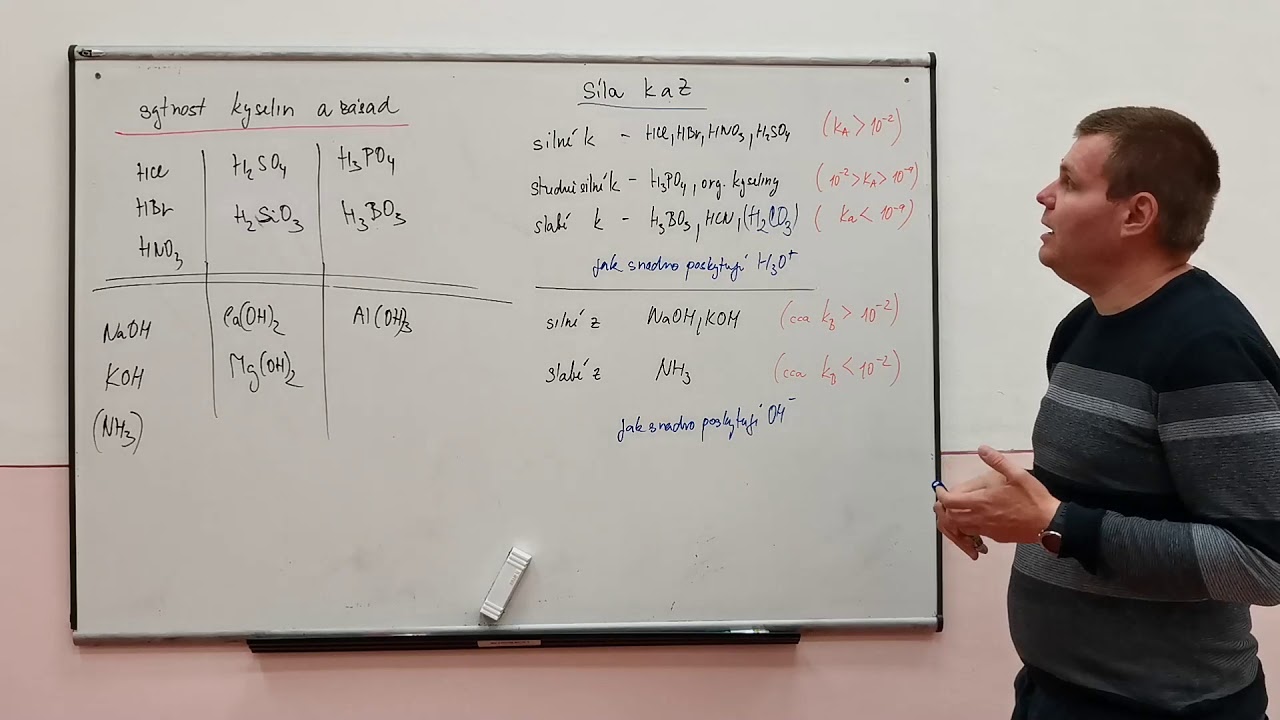 sytnost kyselin a zásad
HCl H₂SO₄ H₃PO₄
HBr H₂SiO₃ H₃BO₃
HNO₃
NaOH Ca(OH)₂ Al(OH)₃
KOH Mg(OH)₂
(NH₃)
Síla K a Z
silné k – HCl, HBr, HNO₃, H₂SO₄ (K_A > 10⁻²)
středně silné k – H₃PO₄, org. kyseliny (10⁻² > K_A > 10⁻⁹)
slabé k – H₃BO₃, HCN, (H₂CO₃) (Ka < 10⁻⁹)
jak snadno poskytují H₃O⁺
silné z NaOH, KOH (cca k_B > 10⁻²)
slabé z NH₃ (cca k_B < 10⁻²)
jak snadno poskytují OH⁻